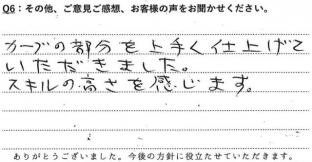 Q6：その他、ご意見ご感想、お客様の声をお聞かせください。
カーブの部分を上手く仕上げて
いただきました。
スキルの高さを感じます。
ありがとうございました。今後の方針に役立たせていただきます。